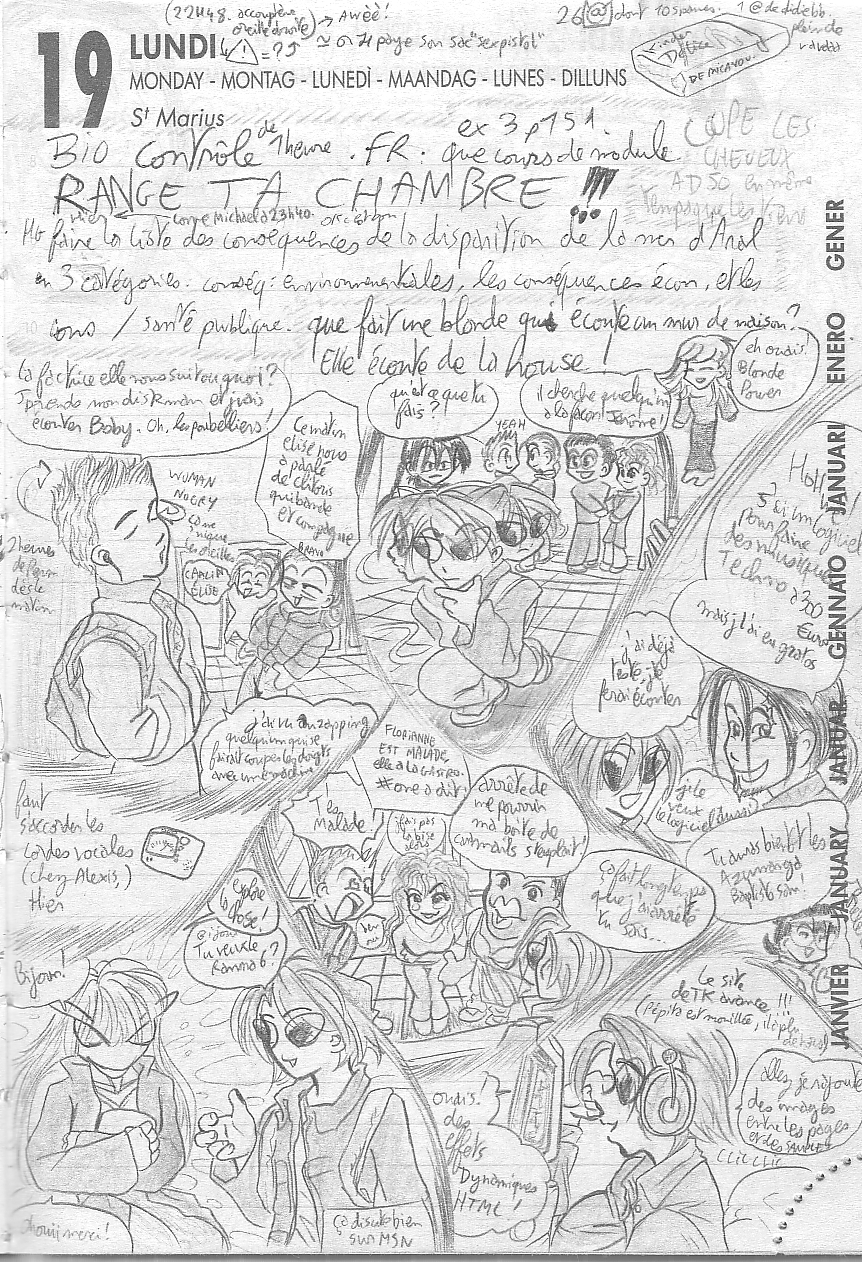 (22H48. acouphène
oreille droite) → Awéé!
26 @ dont 10 spams. 1 @ de didiebb.
plein de
19 LUNDI
MONDAY - MONTAG - LUNEDÌ - MAANDAG - LUNES - DILLUNS
St Marius
paye son sac "sexpistol"
kinder
Délice
DE MICAVOU.
BIO Contrôle de 1 heure. FR: que cours de module
ex 3 p 151.
COUPE LES
CHEVEUX
A D50 en même
temps que les tiens
RANGE TA CHAMBRE !!!
Hier
Michael à 23h40.
HG faire la liste des conséquences de la disparition de la mer d'Aral
en 3 catégories. conséq: environnementales, les conséquences écon, et les
cons / santé publique. que fait une blonde qui écoute un mur de maison?
Elle écoute de la house!
eh ouais!
Blonde
Power
La factrice elle nous suit ou quoi?
J'prends mon diskman et j'vais
écouter Baby. Oh, les poubelliers!
Ce matin
elise nous
a parlé
de clitoris
qui bande
et compagnie
qu'est ce que tu
fais?
il cherche quelqu'un
à la façon Jérôme!
YEAH
WOMAN
NO CRY
ça me
nique
les oreilles
2 heures
de perm
dès le
matin
CÂLIN
BRAVO
5 si un logiciel
pour faire
des musiques
Techno à 300
Euros
mais j'l'ai eu gratos
j'ai déjà
testé, j'te
ferai écouter
j'le
veux
le logiciel aussi!
j'ai vu au zapping
quelqu'un qui se
faisait couper les doigts
avec une machine
FLORIANNE
EST MALADE,
elle a la GASTRO.
#one a dit!
T'es
Malade!
j'fais pas
la bise
alors
arrête de
me pourrir
ma boîte de
cartmails s'teuplait!
Ça fait longtemps
que j'ai arrêté
tu sais...
Tu auras bientôt les
Azumanga
Baptist-sam!
faut
s'accorder les
cordes vocales
(chez Alexis,)
Hier
explore
la chose!
Tu veux le
Ranma 6?
Bijour!
Ohoui merci!
Ça discute bien
sur MSN
Le site
de TK avance!!!
(Pépita est mouillée, il pleut
dehors)
ouais!
des
effets
Dynamiques
HTML!
allez, je rajoute
des images
entre les pages
et des SAMPLES
CLIC CLIC
JANVIER JANUARY JANUAR GENNAIO JANUARI ENERO GENER